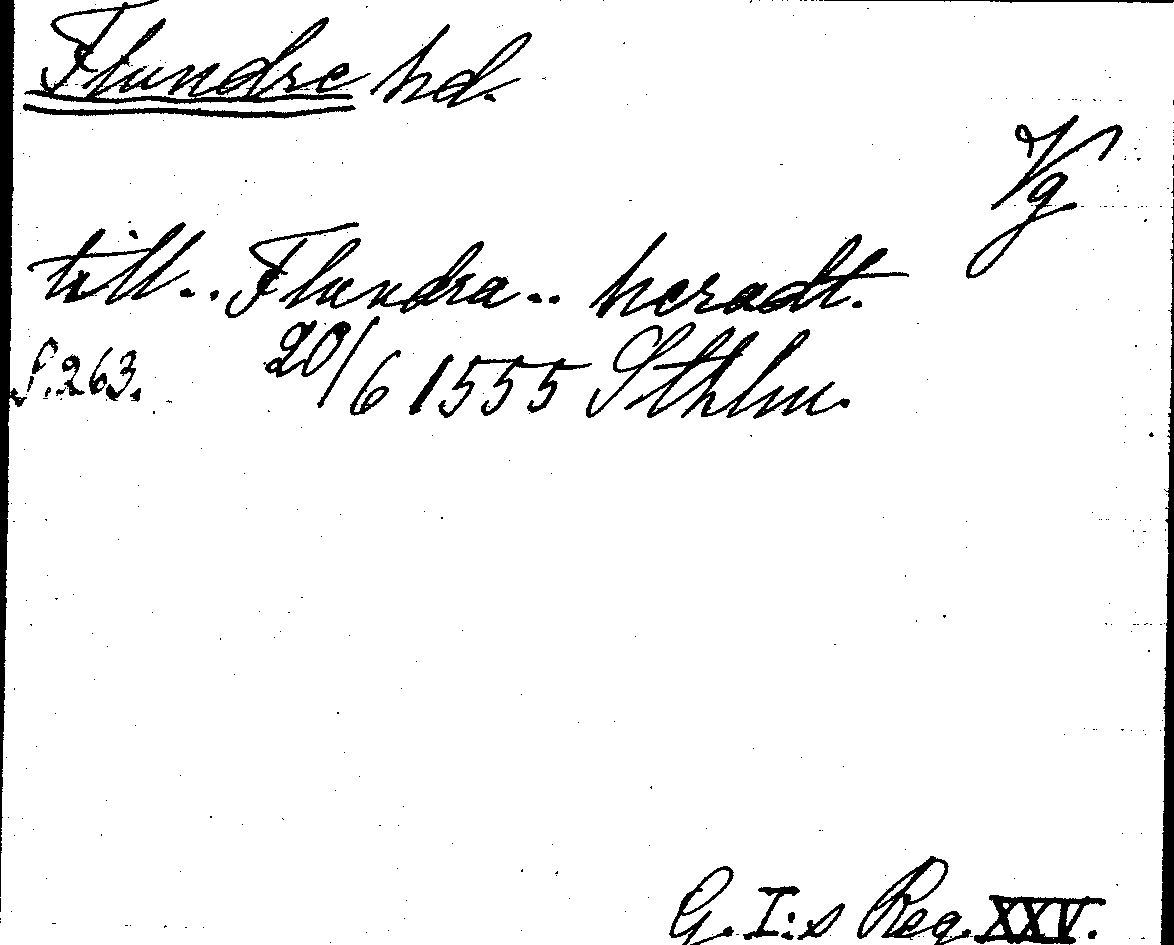 Flundre hd.
Vg
till.. Flundra.. heradt.
S. 263. 20/6 1555 Sthlm.
G. I:s Reg. XXV.